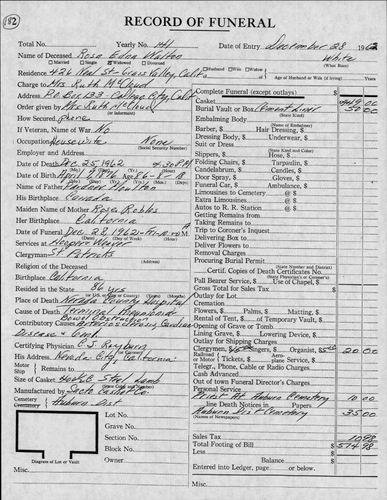 182
RECORD OF FUNERAL
Total No. Yearly No. 44 Date of Entry December 28 1962
Name of Deceased Rose Edna Walton White
Married Single Widowed Divorced (What Race)
Residence 426 Neal St. Grass Valley, Calif. Husband Wife Widow Age of Husband or Wife (if living)
Charge to Mrs. Ruth McCloud
Address P.O. Box 123 - City, Calif.
Order given by Mrs Ruth McCloud
How Secured phone
If Veteran, Name of War No
Occupation Housewife None
(Social Security Number)
Employer and Address
Date of Death Dec. 25, 1962 4:30 P.M.
Date of Birth April 7, 1876 Age 86-8-18
Name of Father
His Birthplace Canada
Maiden Name of Mother Rose Robbs
Her Birthplace California
Date of Funeral Dec. 28, 1962 - Fri - 10:00 A M
Services at Hooper Weaver
Clergyman St Patricks
Religion of the Deceased
Birthplace California
Resided in the State 86 yrs
Place of Death Nevada County Hospital
Cause of Death Terminal
Bowel Obstruction
Contributory Causes
Disease
Certifying Physician C.J. Rayburn
His Address Nevada City California
Motor Ship Remains to
Size of Casket Steel Lamb
Manufactured by Sacto Casket Co.
Cemetery Crematory Auburn Dist
Lot No.
Grave No.
Section No.
Block No.
Owner
Diagram of Lot or Vault
Misc.
Complete Funeral (except outlays)
Casket 449 00
Burial Vault or Box Cement Liner 50 00
(State Kind)
Embalming Body
(Name of Embalmer)
Barber, Hair Dressing,
Dressing Body, Underwear,
Suit or Dress
(State Kind and Color)
Slippers, Hose,
Folding Chairs, Tarpaulin,
Candelabrum, Candles,
Door Spray, Gloves,
Funeral Car, Ambulance,
Limousines to Cemetery @ $
Extra Limousines @ $
Autos to R. R. Station @ $
Getting Remains
Taking Remains to
Trip to Coroner's Inquest
Delivering Box to
Deliver Flowers to
Removal Charges
Procuring Burial Permit
(State Number and District)
Certif. Copies of Death Certificates No.
(State Physician's or Coroner's)
Pall Bearer Service, Use of Chapel,
Gross Total for Sales Tax $
Outlay for Lot
Cremation
Flowers, Palms, Matting,
Rental of Tent, of Temporary Vault,
Opening of Grave or Tomb
Lining Grave, Lowering Device,
Outlay for Shipping Charges
Clergymen, Singers, Organist, 20 00
Railroad Motor Tickets, Aeroplane Other
Telegr., Phone, Cable or Radio Charges
Cash Advanced
Out of town Funeral Director's Charges
Personal Service
Priest At Auburn Cemetery 10 00
line Death Notices in Papers
(Names of Papers)
Auburn Dist Cemetery 35 00
Sales Tax 10 98
Total Footing of Bill $ 574 98
Less
Balance $
Entered into Ledger, page or below.
Misc.